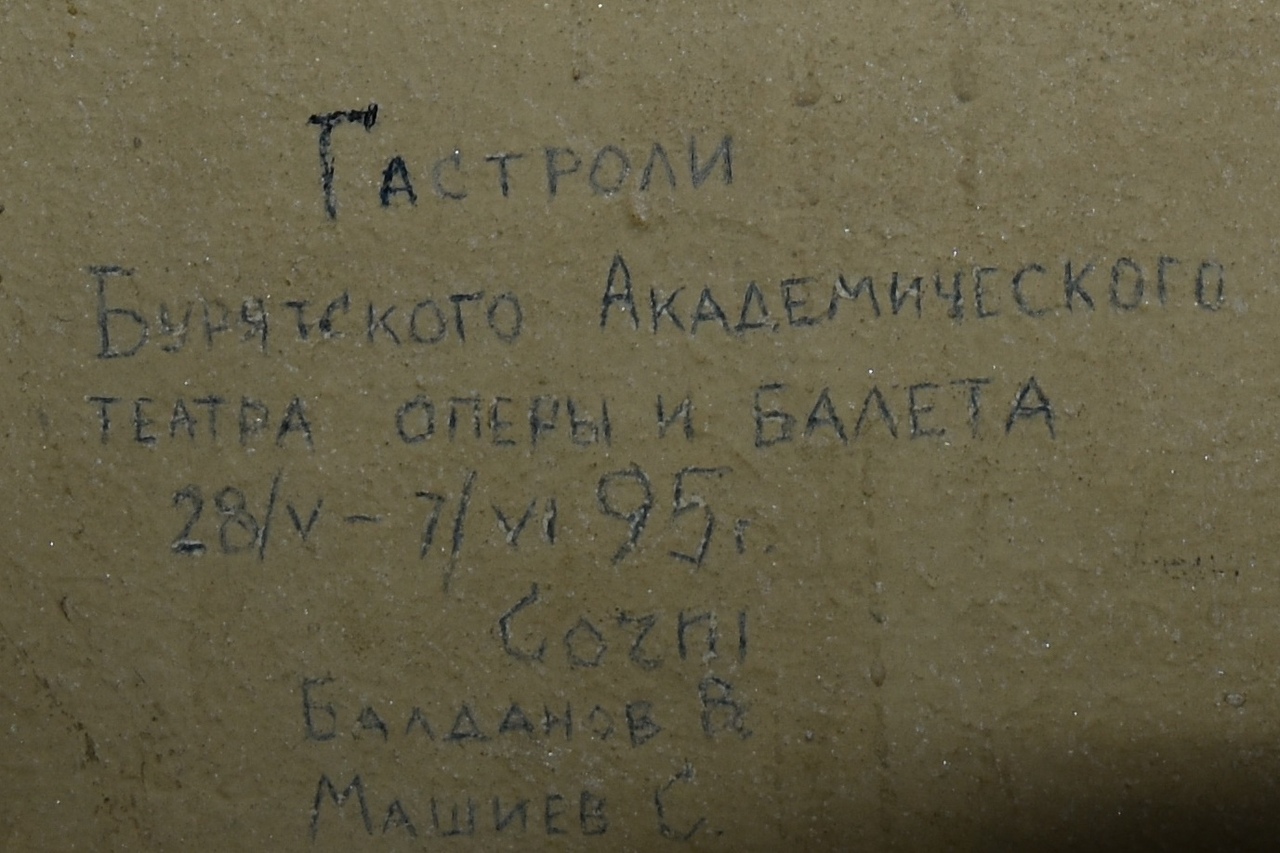 Гастроли
Бурятского Академического
театра оперы и балета
28/V – 7/VI 95г.
Балданов В
Машиев С.